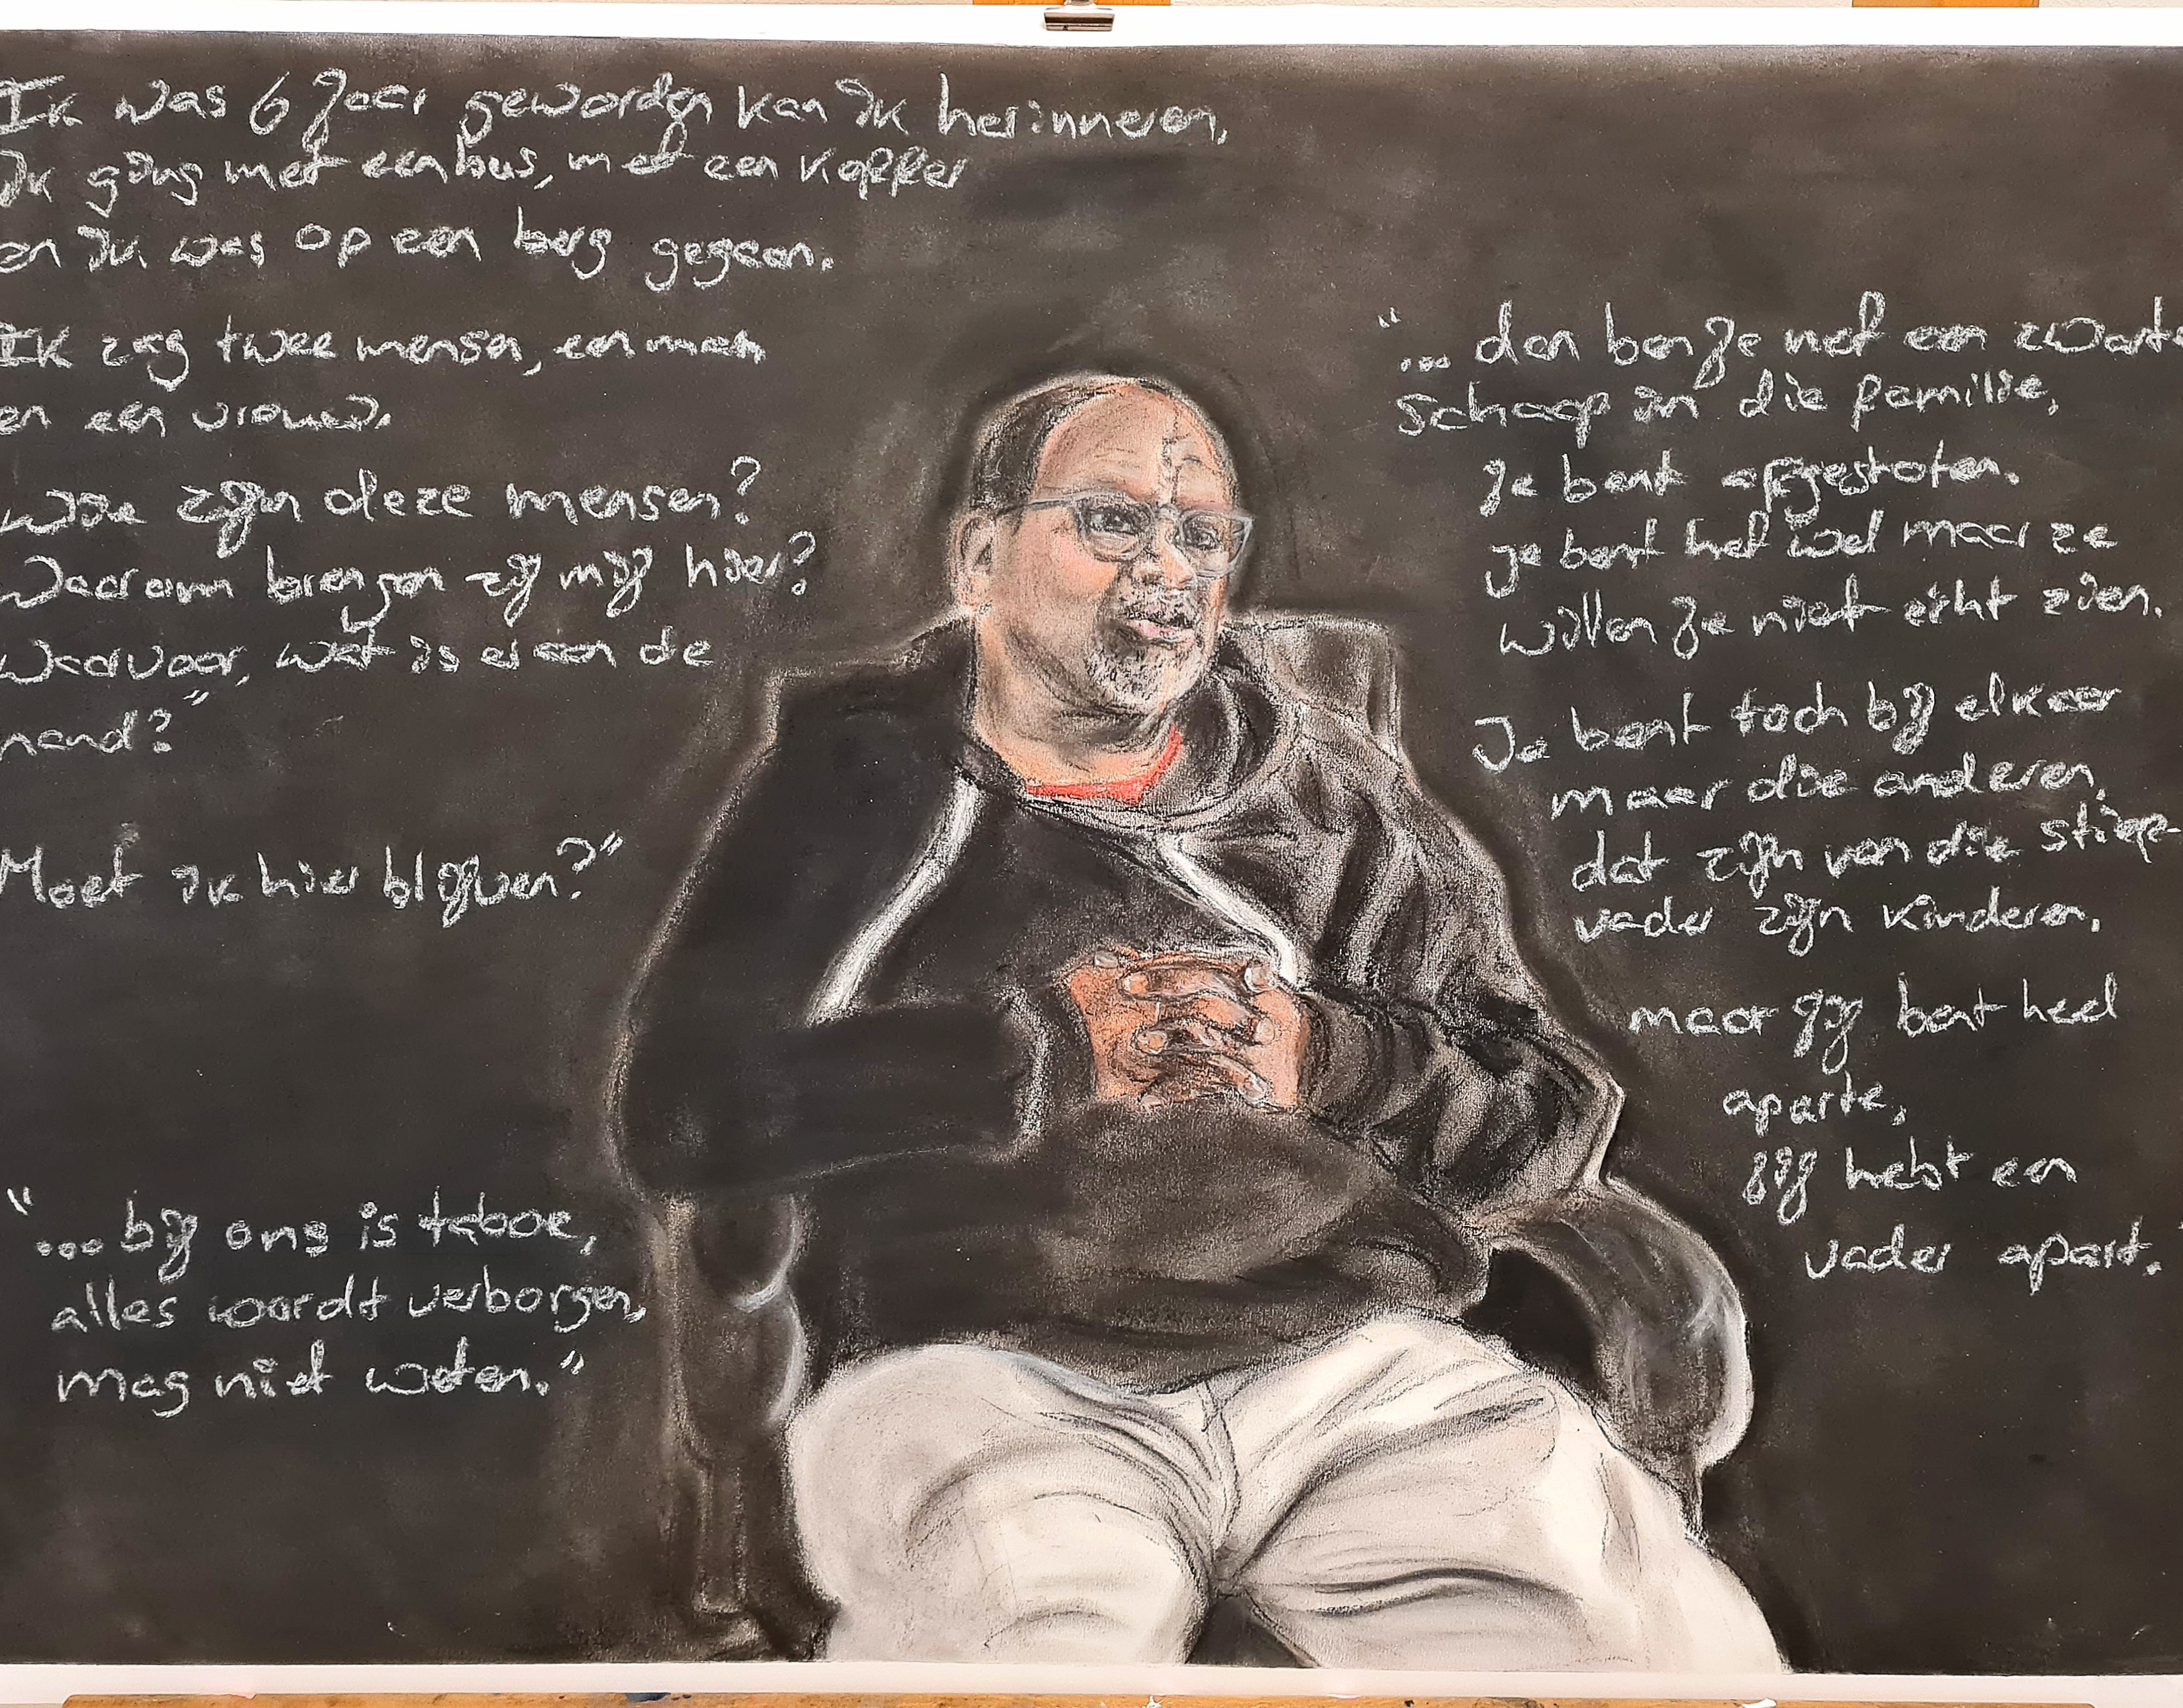 Ik was 6 jaar geworden kan ik herinneren,
ik ging met een bus, met een koffer
en ik was op een berg gegaan.
Ik zag twee mensen, een man
en een vrouw.
Wie zijn deze mensen?
Waarom brengen zij mij hier?
Waarvoor, wat is er aan de
hand?"
Moet ik hier blijven?"
"... bij ons is taboe,
alles wordt verborgen,
mag niet weten."
"... dan ben je net een zwarte
schaap in die familie,
je bent afgestoten.
je bent het wel maar ze
willen je niet echt zien.
Je bent toch bij elkaar
maar die anderen,
dat zijn van die stief-
vader zijn kinderen.
maar jij bent heel
aparte,
jij hebt een
vader apart.